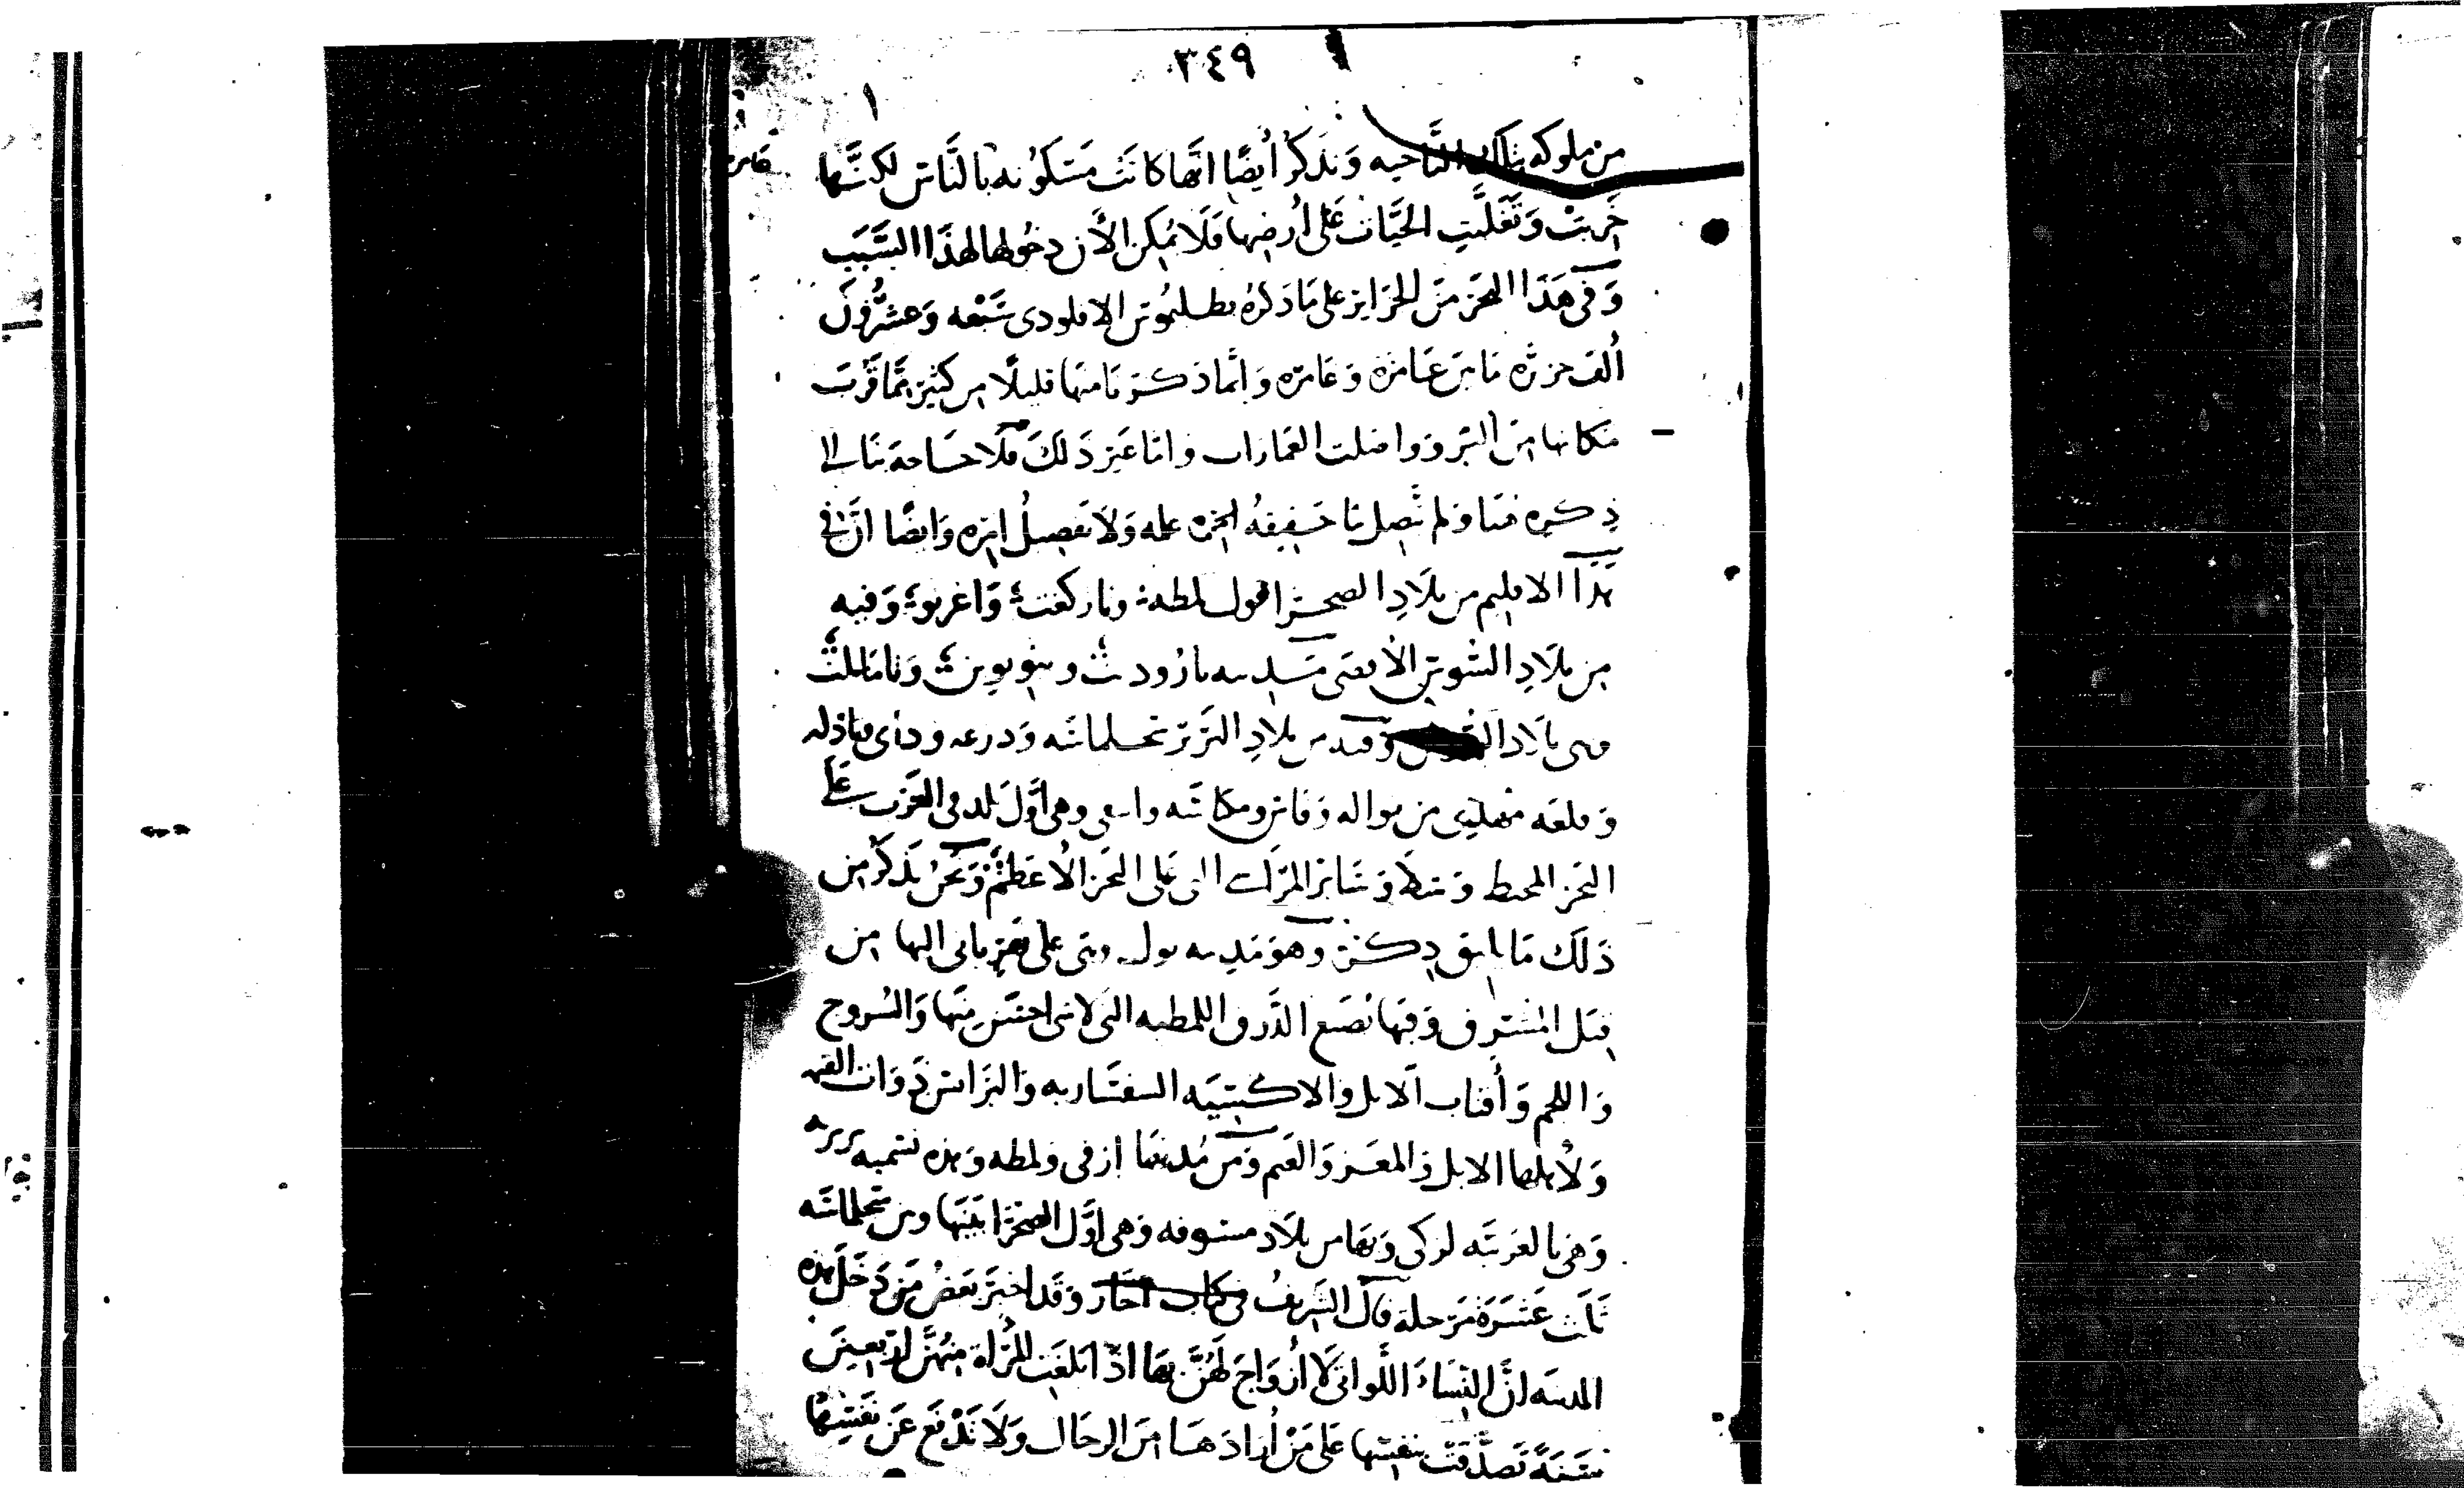 ٣٤٩
١
من ملوكه بتلك الناحيه وَنذكر أيضًا انّها كانَت مَسكونه بالنَّاس لكنَّها
خَربَتْ وَتغَلَّبَتِ الحَيَّات عَلى أرضِها فَلَا يُمكِن الأن دخُولها لهذَا السَّبَب
وَفى هَذَا البحَر مَن الجزَاير على مَا ذكرهُ بطلميُوس الاقلودى سَبْعه وَعشْرُونَ
ألف جزيرة مَا بين عَامرَه وَغامرَه وَانّما ذكرنَا منهَا قليلًا من كثير ممَّا قَرُبَ
مَكانها مِنَ البَر وَواصلت العمَارات وَامّا غَير ذَلكَ فَلَا حَاجة بنَا الى
ذِكره هنا وَلم تصِل بنَا حَقيقهُ الخبره عليه وَلَا تفصيلُ امره وَايضًا انَّ فى
هذَا الاقليم من بلَادِ الصحرا نول لمطه وتازكغت وَاغرنو وَفيه
من بلَادِ السُّوسِ الأقصَى مَدينه تارُودنت وتيويوين وَتامَاللت
وهى بلَاد السوس وَفيه من بلَادِ البَربَر سجلماسَه وَدرعه وداى وتاذله
وَقلعَه مهدى من تواله وَفاس ومكناسَه واسفى وهى أوَّل بلد فى الغَرب عَلى
البَحر المحيط وَسَلا وَسَاير المَراكب التى عَلى البحَر الأعظم وَنحنُ نَذكرُ من
ذَلك مَا يليق ذِكره وهوَ مَدينه نول وهى على نهر ياتى اليها من
قبَل المشرق وَفيهَا تصنَع الدَّرق اللمطيه التى لا شى احسَن منهَا وَالسُروج
وَاللجم وَأقتاب الابل والاكسيَه السفسَاريه وَالبرَانس ذَوَات القيمه
وَلأهلها الابل وَالمعَز وَالغنم وَمن مُدنهَا ازقى ولمطه وَهذه تسميه بربريه
وَهى بالغرَبيَّه لوكى وَبهَا من بلَاد مسوفه وَهى أوَّل الصحرَا بَينهَا وبين سجلماسَه
ثَلَث عَشرَة مَرحلة قالَ الشريفُ فى كتاب اجار وَقَد اخبرَ بَعضُ مَن دَخَلَ هذه
المدينه انَّ النِسَاءَ اللَّواتى لَا أزوَاجَ لَهُنَّ بهَا اذَا بلَغَت المرأة مِنهُنَّ اربَعينَ
سَنَةً تَصَدَّقَت بنفسِها عَلى مَن أرَادَهَا مِنَ الرجَال وَلَا تَدْفَع عَن نَفسِهَا